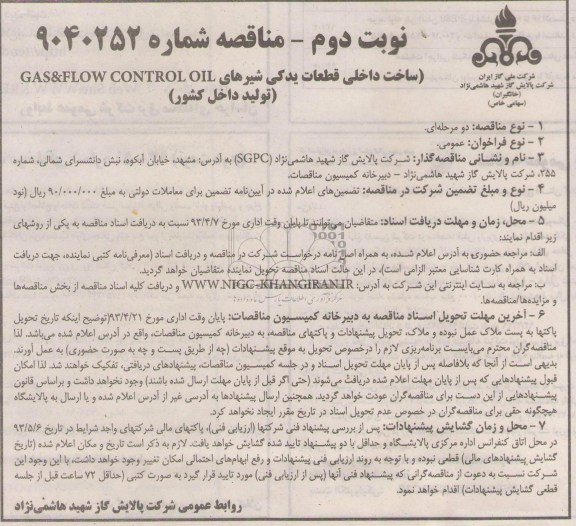 نوبت دوم - مناقصه شماره ۹۰۴۰۲۵۲
(ساخت داخلی قطعات یدکی شیرهای GAS&FLOW CONTROL OIL
(تولید داخل کشور)
شرکت ملی گاز ایران
شرکت پالایش گاز شهید هاشمی‌نژاد
(خانگیران)
(سهامی خاص)
۱ - نوع مناقصه: دو مرحله‌ای.
۲ - نوع فراخوان: عمومی.
۳ - نام و نشانی مناقصه‌گذار: شرکت پالایش گاز شهید هاشمی‌نژاد (SGPC) به آدرس: مشهد، خیابان آبکوه، نبش دانشسرای شمالی، شماره
۲۵۵، شرکت پالایش گاز شهید هاشمی‌نژاد - دبیرخانه کمیسیون مناقصات.
۴ - نوع و مبلغ تضمین شرکت در مناقصه: تضمین‌های اعلام شده در آیین‌نامه تضمین برای معاملات دولتی به مبلغ ۹۰/۰۰۰/۰۰۰ ریال (نود
میلیون ریال)
۵ - محل، زمان و مهلت دریافت اسناد: متقاضیان می‌توانند تا پایان وقت اداری مورخ ۹۳/۴/۷ نسبت به دریافت اسناد مناقصه به یکی از روشهای
زیر اقدام نمایند:
الف: مراجعه حضوری به آدرس اعلام شده، به همراه اصل نامه درخواست شرکت در مناقصه و دریافت اسناد (معرفی‌نامه کتبی نماینده، جهت دریافت
اسناد به همراه کارت شناسایی معتبر الزامی است)، در این حالت اسناد مناقصه تحویل نماینده متقاضیان خواهد گردید.
ب: مراجعه به سایت اینترنتی این شرکت به آدرس: WWW.NIGC-KHANGIRAN.IR و دریافت کلیه اسناد مناقصه از بخش مناقصه‌ها
و مزایده‌ها/مناقصه‌ها.
۶ - آخرین مهلت تحویل اسناد مناقصه به دبیرخانه کمیسیون مناقصات: پایان وقت اداری مورخ ۹۳/۴/۲۱(توضیح اینکه تاریخ تحویل
پاکتها به پست ملاک عمل نبوده و ملاک، تحویل پیشنهادات و پاکتهای مناقصه، به دبیرخانه کمیسیون مناقصات، واقع در آدرس اعلام شده می‌باشد. لذا
مناقصه‌گران محترم می‌بایست برنامه‌ریزی لازم را درخصوص تحویل به موقع پیشنهادات (چه از طریق پست و چه به صورت حضوری) به عمل آورند.
بدیهی است از آنجا که بلافاصله پس از پایان مهلت تحویل اسناد و در جلسه کمیسیون مناقصات، پیشنهادهای دریافتی، تفکیک خواهند شد. لذا امکان
قبول پیشنهادهایی که پس از پایان مهلت اعلام شده دریافت می‌شوند (حتی اگر قبل از پایان مهلت ارسال شده باشند) وجود نخواهد داشت و براساس قانون
پیشنهادهایی از این دست برای مناقصه‌گران عودت خواهد گردید. همچنین ارسال پیشنهادها به آدرسی غیر از آدرس اعلام شده و یا ارسال به پالایشگاه
هیچگونه حقی برای مناقصه‌گران در خصوص عدم تحویل اسناد در تاریخ مقرر ایجاد نخواهد کرد.
۷ - محل و زمان گشایش پیشنهادات: پس از بررسی پیشنهاد فنی شرکتها (ارزیابی فنی)، پاکتهای مالی شرکتهای واجد شرایط در تاریخ ۹۳/۵/۶
در محل اتاق کنفرانس اداره مرکزی پالایشگاه و حداقل با دو پیشنهاد تایید شده گشایش خواهد یافت. لازم به ذکر است تاریخ و مکان اعلام شده (تاریخ
گشایش پیشنهادهای مالی) قطعی نبوده و با توجه به روند ارزیابی فنی پیشنهادات و رفع ابهام‌های احتمالی امکان تغییر وجود خواهد داشت، با این وجود این
شرکت نسبت به دعوت از مناقصه‌گرانی که پیشنهاد فنی آنها (پس از ارزیابی فنی) مورد تایید قرار گیرد به صورت کتبی (حداقل ۷۲ ساعت قبل از جلسه
قطعی گشایش پیشنهادات) اقدام خواهد نمود.
روابط عمومی شرکت پالایش گاز شهید هاشمی‌نژاد